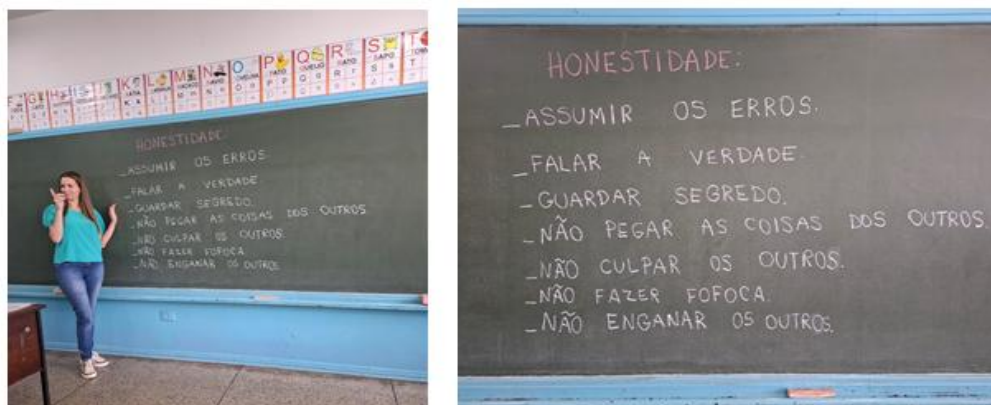 F G H I J K L M N O P Q R S T
HONESTIDADE:
_ASSUMIR OS ERROS.
_FALAR A VERDADE
_GUARDAR SEGREDO.
_NÃO PEGAR AS COISAS DOS OUTROS
_NÃO CULPAR OS OUTROS.
_NÃO FAZER FOFOCA
_NÃO ENGANAR OS OUTROS
HONESTIDADE:
_ASSUMIR OS ERROS.
_FALAR A VERDADE
_GUARDAR SEGREDO.
_NÃO PEGAR AS COISAS DOS OUTROS.
_NÃO CULPAR OS OUTROS.
_NÃO FAZER FOFOCA.
_NÃO ENGANAR OS OUTROS.